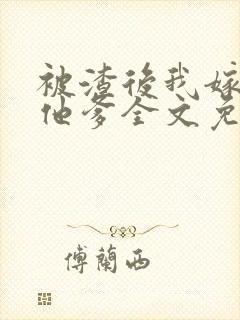 被渣後我嫁
他爹全文免
傅蘭西